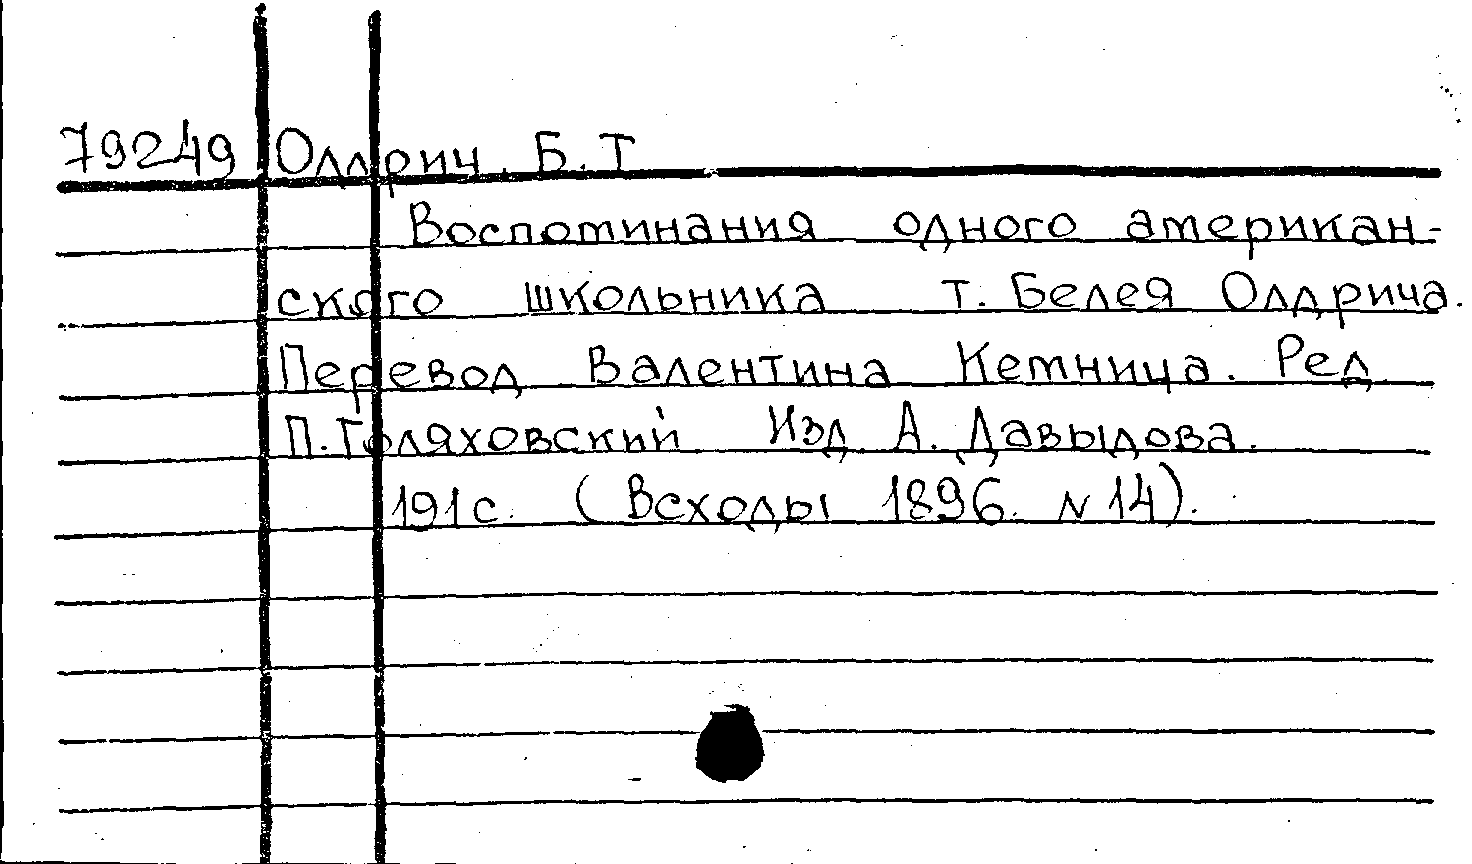 79249 Олдрич Б. Т
Воспоминания одного американ-
ского школьника т. Белея Олдрича.
Перевод Валентина Кемница. Ред
П. Голяховский Изд А. Давыдова.
191 с. (Всходы 1896. N 14).